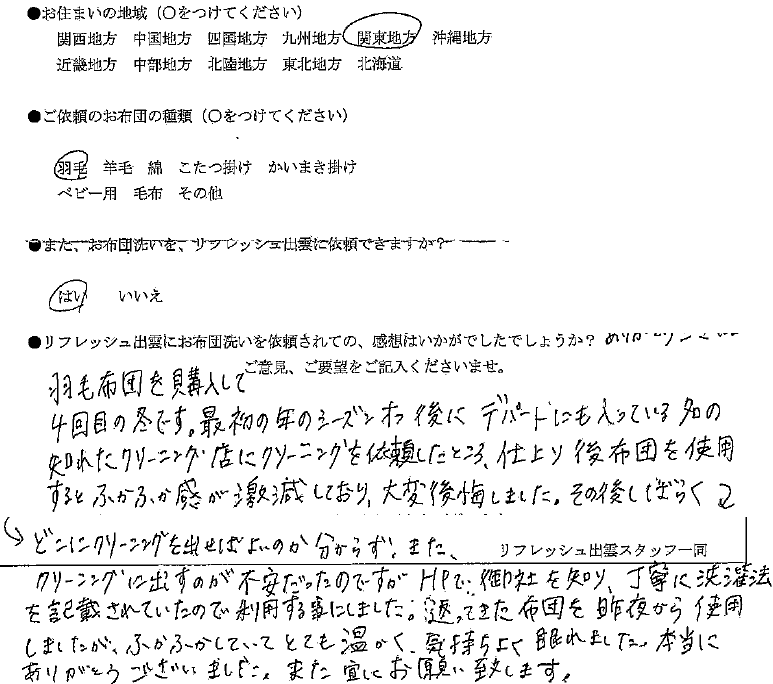 ●お住まいの地域（〇をつけてください）
関西地方　中国地方　四国地方　九州地方　関東地方　沖縄地方
近畿地方　中部地方　北陸地方　東北地方　北海道
●ご依頼のお布団の種類（〇をつけてください）
羽毛　羊毛　綿　こたつ掛け　かいまき掛け
ベビー用　毛布　その他
●また、お布団洗いを、リフレッシュ出雲に依頼できますか？
はい　いいえ
●リフレッシュ出雲にお布団洗いを依頼されての、感想はいかがでしたでしょうか？
ご意見、ご要望をご記入くださいませ。
羽毛布団を購入して
4回目の冬です。最初の年のシーズンオフ後に デパートにも入っている名の
知れたクリーニング店にクリーニングを依頼したところ、仕上り後布団を使用
するとふかふか感が激減しており、大変後悔しました。その後しばらく
どこにクリーニングを出せばよいのか分からず、また、
リフレッシュ出雲スタッフ一同
クリーニングに出すのが不安だったのですがHPで御社を知り、丁寧に洗濯法
を記載されていたので利用する事にしました。返ってきた布団を昨夜から使用
しましたが、ふかふかしていてとても温かく、気持ちよく眠れました。本当に
ありがとうございました。また宜しくお願い致します。